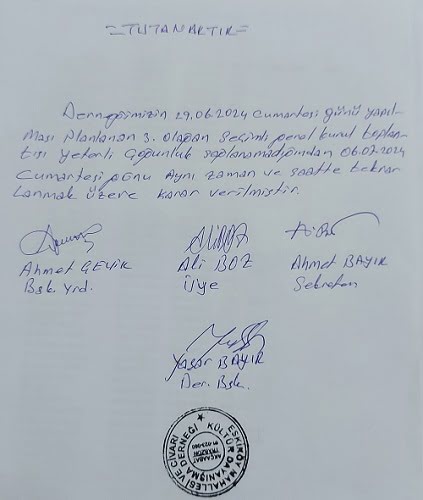 =TUTANAKTIR=
Derneğimizin 29.06.2024 Cumartesi günü yapıl-
ması planlanan 3. olağan seçimli genel kurul toplan-
tısı yeterli çoğunluk sağlanamadığından 06.07.2024
Cumartesi günü aynı zaman ve saatte tekrar
lanmak üzere karar verilmiştir.
Ahmet GEYİK Ali BOZ Ahmet BAYIR
Bşk. Yrd. Üye Sekreter
Yaşar BAYIR
Der. Bşk.
ESKİKÖY MAHALLESİ VE CİVARI
KÜLTÜR DAYANIŞMA DERNEĞİ
AKÇAABAT
TRABZON